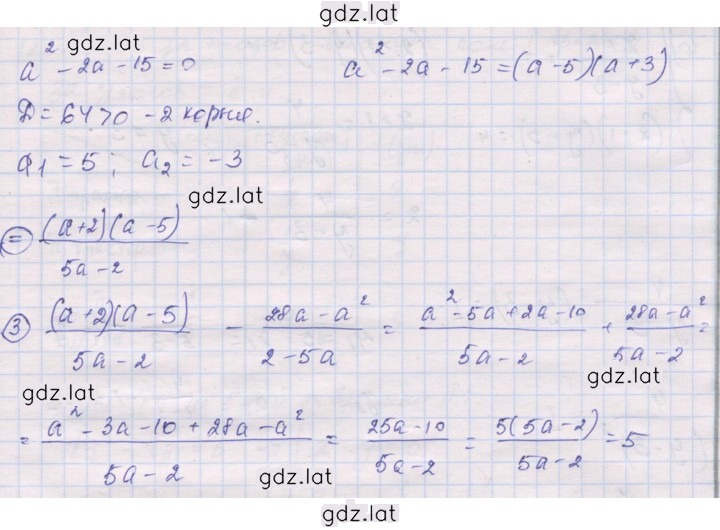 gdz.lat
gdz.lat
a² - 2a - 15 = 0    a² - 2a - 15 = (a - 5)(a + 3)
Д = 64 > 0 - 2 корня.
a₁ = 5; a₂ = -3
gdz.lat
= (a+2)(a-5) / 5a - 2
3 (a+2)(a-5) / 5a - 2 - 28a - a² / 2 - 5a = a² - 5a + 2a - 10 / 5a - 2 + 28a - a² / 5a - 2 =
gdz.lat
gdz.lat
= a² - 3a - 10 + 28a - a² / 5a - 2 = 25a - 10 / 5a - 2 = 5(5a - 2) / 5a - 2 = 5
gdz.lat
gdz.lat